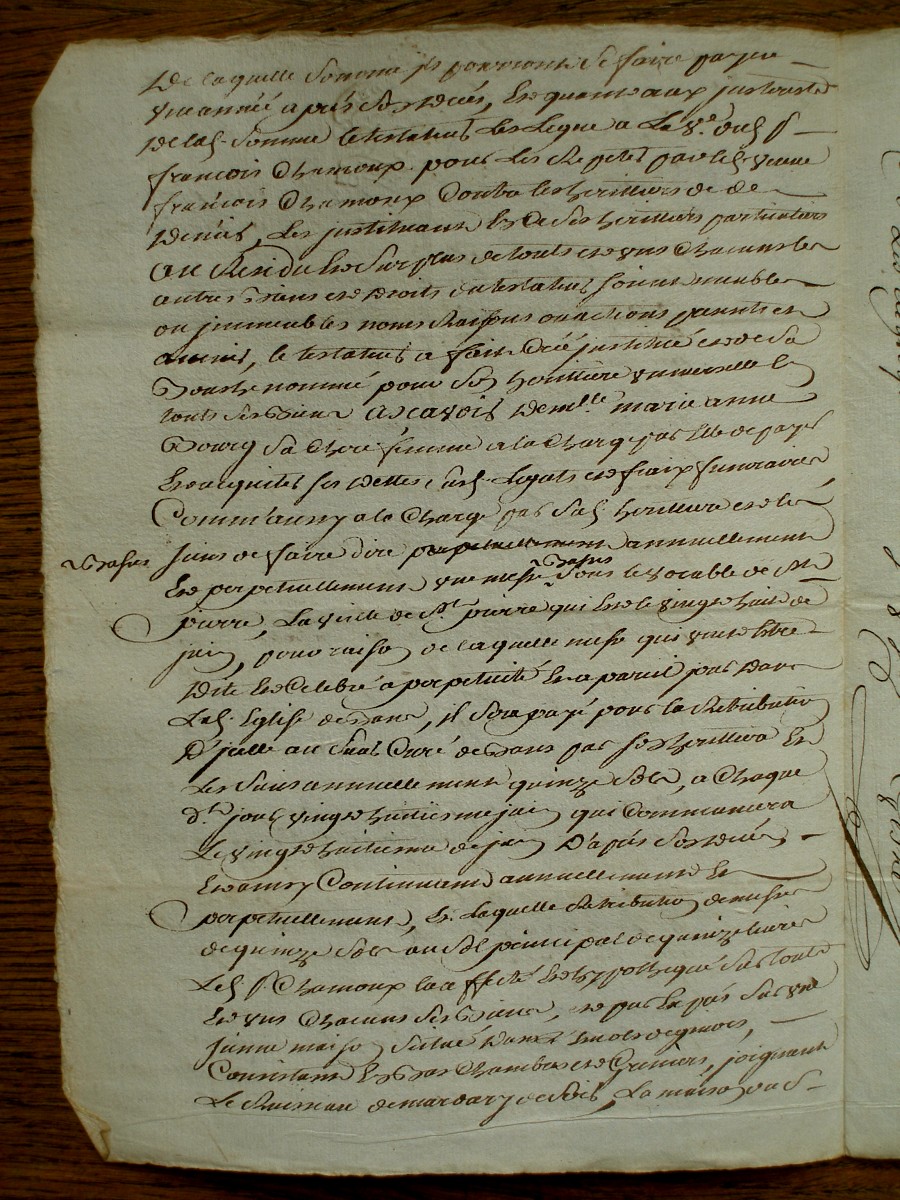 De laquelle somme ils pourront se faire payer
une année après son décès, et quant aux
de lad. somme le testateur les legue a la d. sr
françois Chamoux pour les par led. sieur
françois Chamoux les heritiers de
decès, les instituant ses heritiers particuliers
au Residu et surplus de touts et uns chacuns les
autres Biens et Droits du testateur soient meubles
ou immeubles noms Raisons ou actions presents et
avenir, le testateur a fait Créé institué et de sa
Bouche nommé pour son heritiere universelle en
touts ses Biens ascavoir demlle marie anne
Bourg sa chere femme a la charge par Elle de payer
et acquiter ses dettes, sesd. Legats et fraix funeraires
Comm'aussy a la Charge par sad. heritiere et les
Siens de faire dire perpetuellement annuellement
Basse
Et perpetuellement une messe Basse sous le vocable de St
pierre, La veille de St pierre qui est le vingt huit de
juin, pour raison de laquelle messe qui veut etre
Dite et Celebré a perpetuité et a pareil jour dans
Lad. Eglise de , il sera payé pour la Retribution
D'jcelle au sieur Curé de par ses heritiers et
Les Siens annuellement quinze sols, a chaque
dt. jour vingt huitieme juin qui Commancera
Le vingt huitieme de juin D'après son decès
Et ainsy Continuant annuellement et
perpetuellement, Et laquelle Retribution de messe
de quinze sols au Sol principal de quinze livres
Led. sr Chamoux l'a affecté et hyppothequé sur touts
Et uns chacuns ses Biens, et par Exprés sur une
sienne maison située dans
Consistant En Chambres et Greniers, joignant
Le Ruisseau de de Soir, La maison du S-